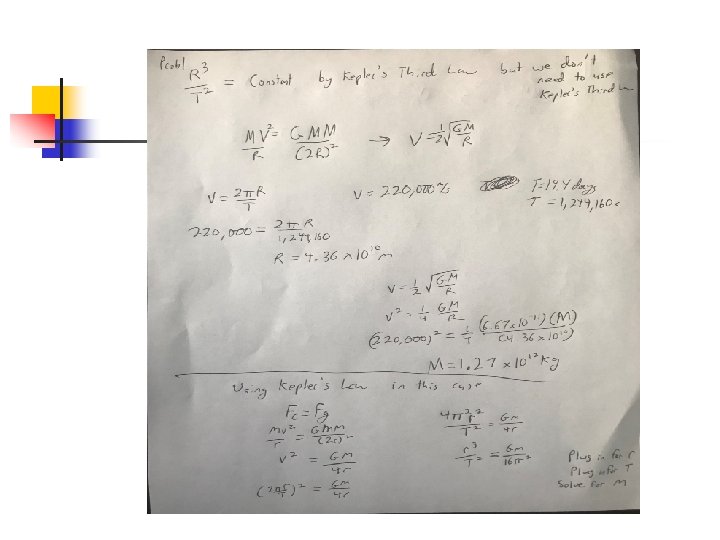 Probl
R³/T² = Constant by Kepler's Third Law but we don't need to use Kepler's Third Law
MV²/R = GMM/(2R)² → V = 1/2 √(GM/R)
V = 2πR/T V = 220,000 m/s T = 14.4 days
T = 1,244,160 s
220,000 = 2πR/1,244,160
R = 4.36 x 10¹⁰ m
V = 1/2 √(GM/R)
V² = 1/4 GM/R
(220,000)² = 1/4 (6.67x10⁻¹¹)(M)/(4.36x10¹⁰)
M = 1.27 x 10³² kg
Using Kepler's Law in this case
Fc = Fg
mv²/r = GMM/(2r)²
v² = GM/4r
(2πr/T)² = GM/4r
4π²r²/T² = GM/4r
r³/T² = GM/16π²
Plug in for r
Plug in for T
Solve for M